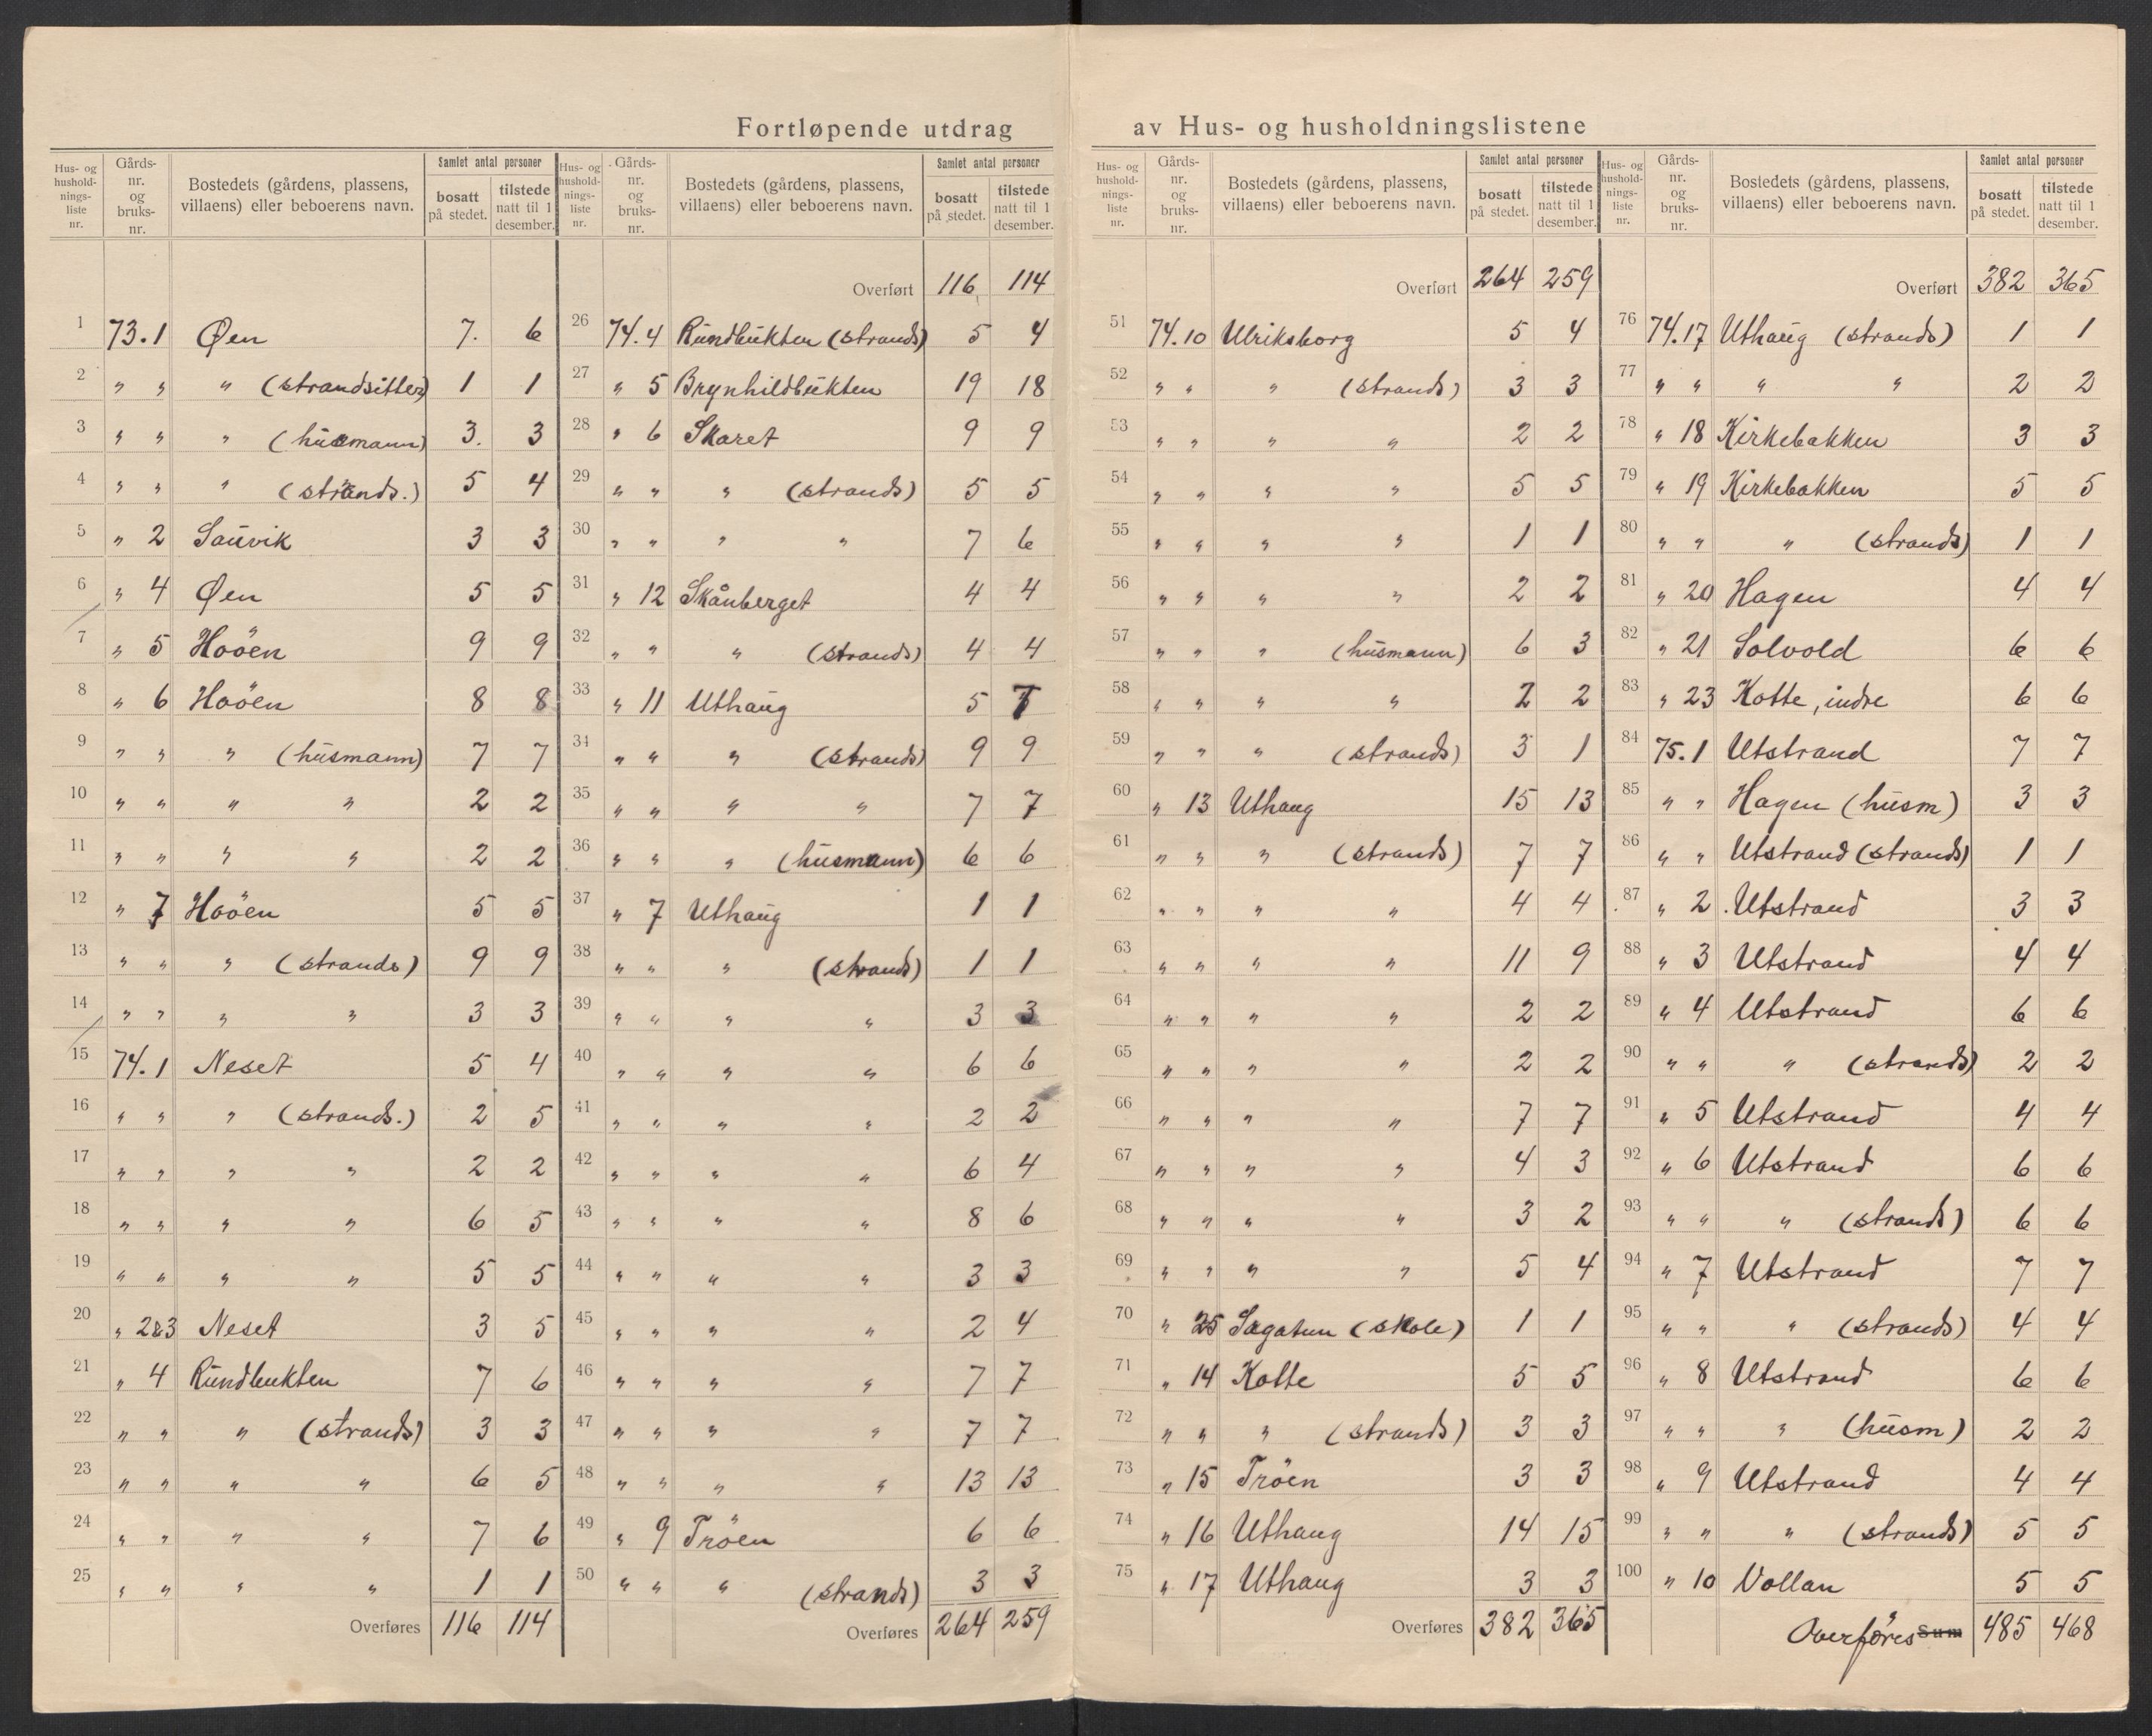 Fortløpende utdrag av Hus- og husholdningslistene
Hus- og hushold-nings-liste nr. | Gårds-nr. og bruks-nr. | Bostedets (gårdens, plassens, villaens) eller beboerens navn. | Samlet antal personer bosatt på stedet. | tilstede natt til 1 desember.
1 73.1 Øen 7. 6
2 " " " (strandsitter) 1 1
3 " " " (husmann) 3. 3
4 " " " (strands.) 5 4
5 " 2 Sauvik 3 3
6 " 4 Øen 5 5
7 " 5 Hoöen 9 9
8 " 6 Hoöen 8 8
9 " " " (husmann) 7 7
10 " " " " 2 2
11 " " " " 2 2
12 " 7 Hoöen 5 5
13 " " " (strands) 9 9
14 " " " " 3 3
15 74.1 Neset 5 4
16 " " " (strands.) 2 5
17 " " " " 2 2
18 " " " " 6 5
19 " " " " 5 5
20 " 2&3 Neset 3 5
21 " 4 Rundbukten 7 6
22 " " " (strands) 3 3
23 " " " " 6 5
24 " " " " 7 6
25 " " " " 1 1
Overføres 116 114
Hus- og hushold-nings-liste nr. | Gårds-nr. og bruks-nr. | Bostedets (gårdens, plassens, villaens) eller beboerens navn. | Samlet antal personer bosatt på stedet. | tilstede natt til 1 desember.
Overført 116 114
26 74.4 Rundbukten (strands) 5 4
27 " 5 Brynhildbukten 19 18
28 " 6 Skaret 9 9
29 " " " (strands) 5 5
30 " " " " 7 6
31 " 12 Skånberget 4 4
32 " " " (strands) 4 4
33 " 11 Uthaug 5 7
34 " " " (strands) 9 9
35 " " " " 7 7
36 " " " (husmann) 6 6
37 " 7 Uthaug 1 1
38 " " " (strands) 1 1
39 " " " " 3 3
40 " " " " 6 6
41 " " " " 2 2
42 " " " " 6 4
43 " " " " 8 6
44 " " " " 3 3
45 " " " " 2 4
46 " " " " 7 7
47 " " " " 7 7
48 " " " " 13 13
49 " 9 Tröen 6 6
50 " " " (strands) 3 3
Overføres 264 259
Hus- og hushold-nings-liste nr. | Gårds-nr. og bruks-nr. | Bostedets (gårdens, plassens, villaens) eller beboerens navn. | Samlet antal personer bosatt på stedet. | tilstede natt til 1 desember.
Overført 264 259
51 74.10 Ulriksborg 5 4
52 " " " (strands) 3 3
53 " " " " 2 2
54 " " " " 5 5
55 " " " " 1 1
56 " " " " 2 2
57 " " " (husmann) 6 3
58 " " " " 2 2
59 " " " (strands) 3 1
60 " 13 Uthaug 15 13
61 " " " (strands) 7 7
62 " " " " 4 4
63 " " " " 11 9
64 " " " " 2 2
65 " " " " 2 2
66 " " " " 7 7
67 " " " " 4 3
68 " " " " 3 2
69 " " " " 5 4
70 " 25 Sagatun (skole) 1 1
71 " 14 Kotte 5 5
72 " " " (strands) 3 3
73 " 15 Tröen 3 3
74 " 16 Uthaug 14 15
75 " 17 Uthaug 3 3
Overføres 382 365
Hus- og hushold-nings-liste nr. | Gårds-nr. og bruks-nr. | Bostedets (gårdens, plassens, villaens) eller beboerens navn. | Samlet antal personer bosatt på stedet. | tilstede natt til 1 desember.
Overført 382 365
76 74.17 Uthaug (strands) 1 1
77 " " " " 2 2
78 " 18 Kirkebakken 3 3
79 " 19 Kirkebakken 5 5
80 " " " (strands) 1 1
81 " 20 Hagen 4 4
82 " 21 Solvold 6 6
83 " 23 Kotte, indre 6 6
84 75.1 Utstrand 7 7
85 " " Hagen (husm) 3 3
86 " " Utstrand (strands) 1 1
87 " 2 Utstrand 3 3
88 " 3 Utstrand 4 4
89 " 4 Utstrand 6 6
90 " " " (strands) 2 2
91 " 5 Utstrand 4 4
92 " 6 Utstrand 6 6
93 " " " (strands) 6 6
94 " 7 Utstrand 7 7
95 " " " (strands) 4 4
96 " 8 Utstrand 6 6
97 " " " (husm) 2 2
98 " 9 Utstrand 4 4
99 " " " (strands) 5 5
100 " 10 Vollan 5 5
Overföres Sum 485 468